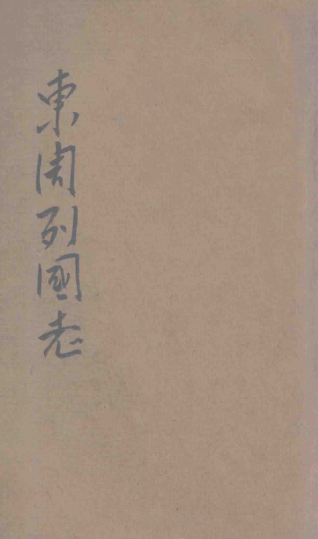 東周列國志